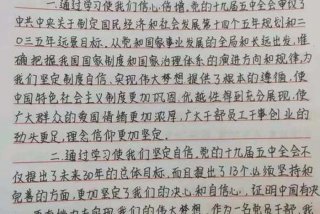 一.通过学习使我们信心倍增,党的十九届五中全会审议了
中共中央关于制定国民经济和社会发展第十四个五年规划和二
〇三五年远景目标,从党和国家事业发展的全局和长远出发,准
确把握我国国家制度和国家治理体系的演进方向和规律,为
我们坚定制度自信、实现伟大梦想提供了根本的遵循,使
中国特色社会主义制度更加巩固、优越性得到充分展现,使
广大群众的爱国情绪更加浓厚,广大干部员工干事创业的
劲头更足,理念信仰更加坚定。
二.通过学习使我们坚定自信,党的十九届五中全会不
仅提出了未来30年的总体目标,而且提出了13个必须坚持和
完善的方面,更加坚定了我们的决心和自信心,证明中国有决
我们的伟大梦想.作为一名党员干部,我